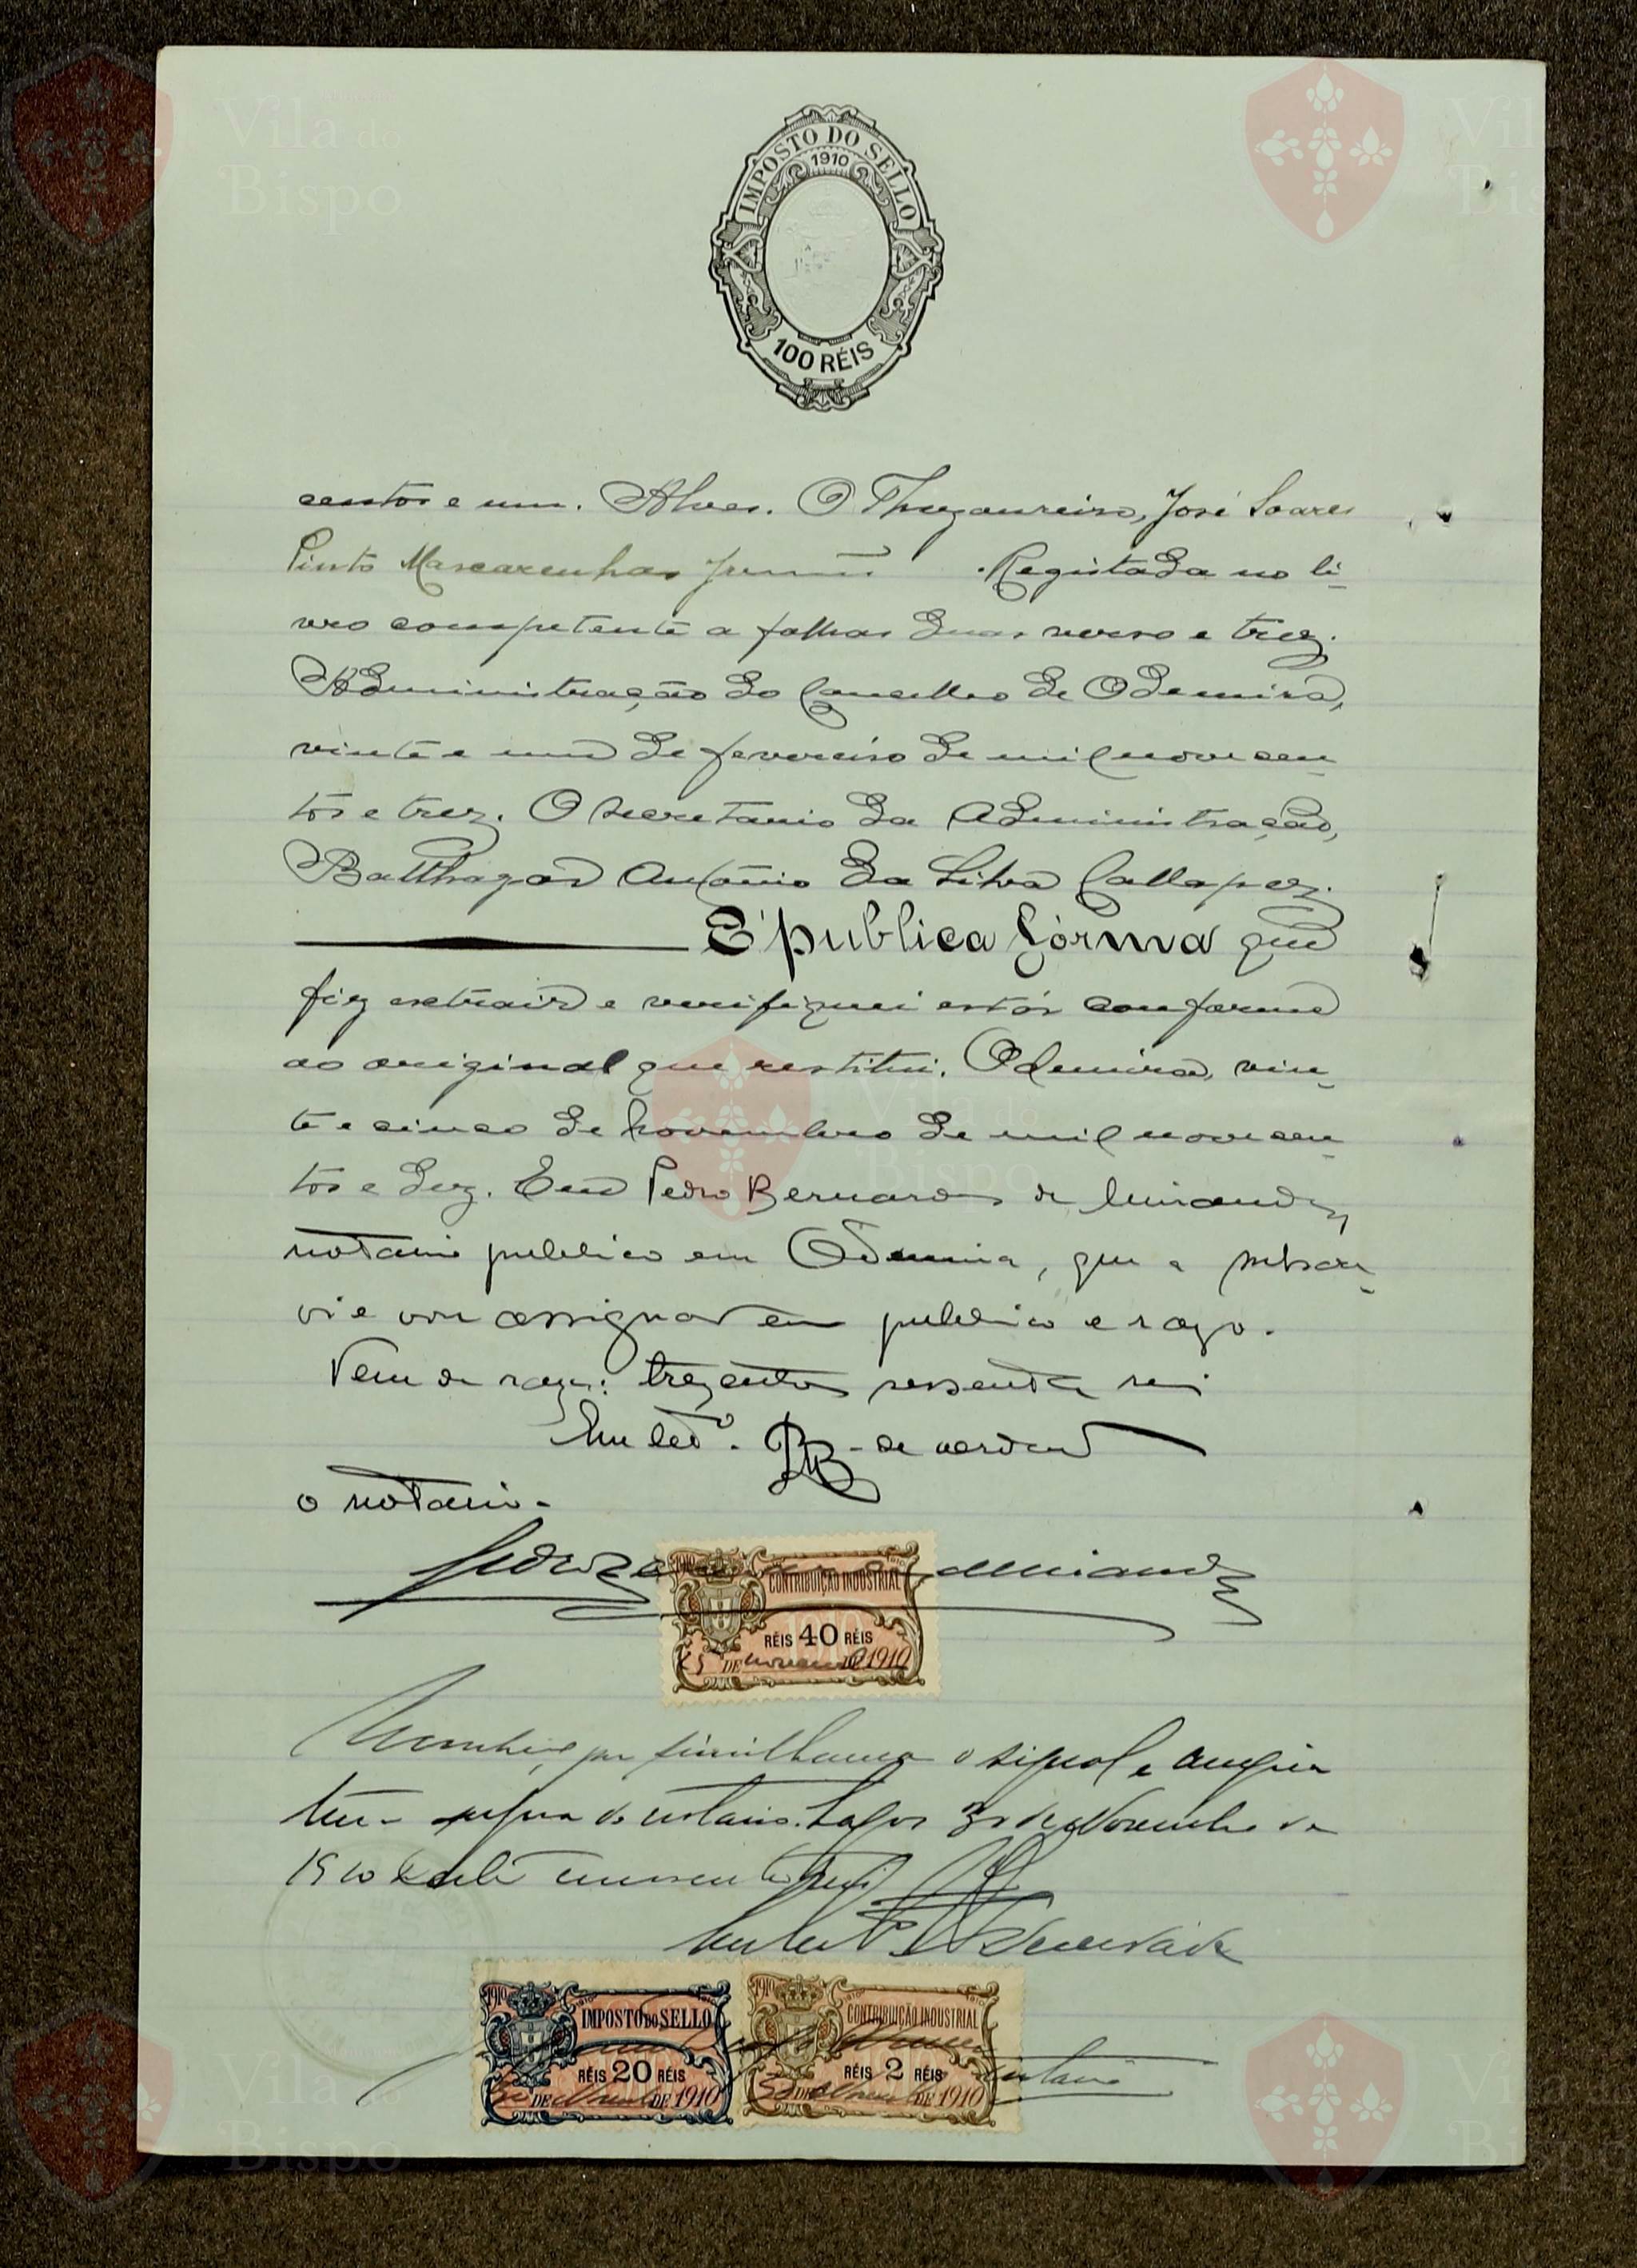 Vila do
Bispo
IMPOSTO DO SELLO
1910
100 RÉIS
centos e um. Alves. O Thezoureiro, José Soares
Pinto Mascarenhas Junior. Registada no li-
vro competente a folhas duas verso e trez.
Administração do Concelho de Odemira,
vinte e um de fevereiro de mil nove cen-
tos e trez. O secretario da Administração,
Balthazar Antonio da Silva Callapez.
E' publica fórma que
fiz extrair e verifiquei estár conforme
ao original que restitui. Odemira, vin-
te e cinco de Novembro de mil nove cen-
tos e dez. Eu Pedro Bernardo de Miranda,
notario publico em Odemira, que a subscre-
vi e vou assignar em publico e razo.
Vem de raza: trezentos sessenta reis
Em test.º de verdade
o notario.
Pedro de Miranda
CONTRIBUIÇÃO INDUSTRIAL
RÉIS 40 RÉIS
25 DE Novembro 1910
Reconheço por similhança o signal e
supra do notario. Lagos 30 de Novembro de
1910
1910 IMPOSTO DO SELLO
RÉIS 20 RÉIS
30 DE Novembro DE 1910
1910 CONTRIBUIÇÃO INDUSTRIAL
RÉIS 2 RÉIS
30 DE Novembro DE 1910
notario